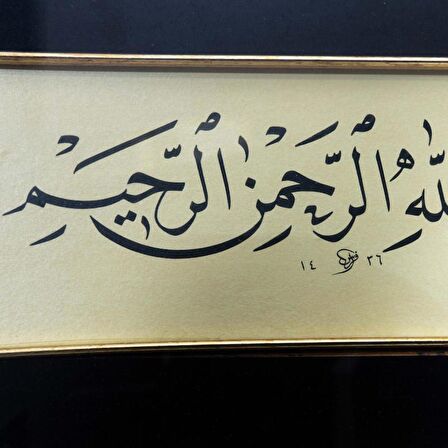 لله الرحمن الرحيم
١٤ ٣٦